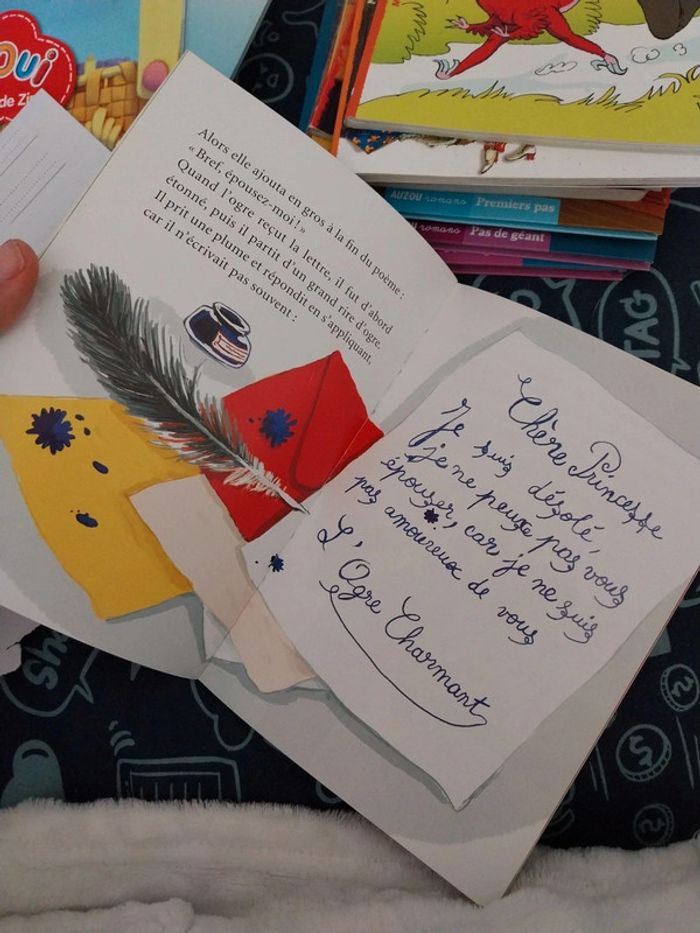 oui
de Zi
AUZOU romans Premiers pas
romans Pas de géant
Alors elle ajouta en gros à la fin du poème :
« Bref, épousez-moi ! »
Quand l'ogre reçut la lettre, il fut d'abord
étonné, puis il partit d'un grand rire d'ogre.
Il prit une plume et répondit en s'appliquant,
car il n'écrivait pas souvent :
Chère Princesse
Je suis désolé,
je ne peuxe pas vous
épouser, car je ne suis
pas amoureux de vous
L'Ogre Charmant
TAG